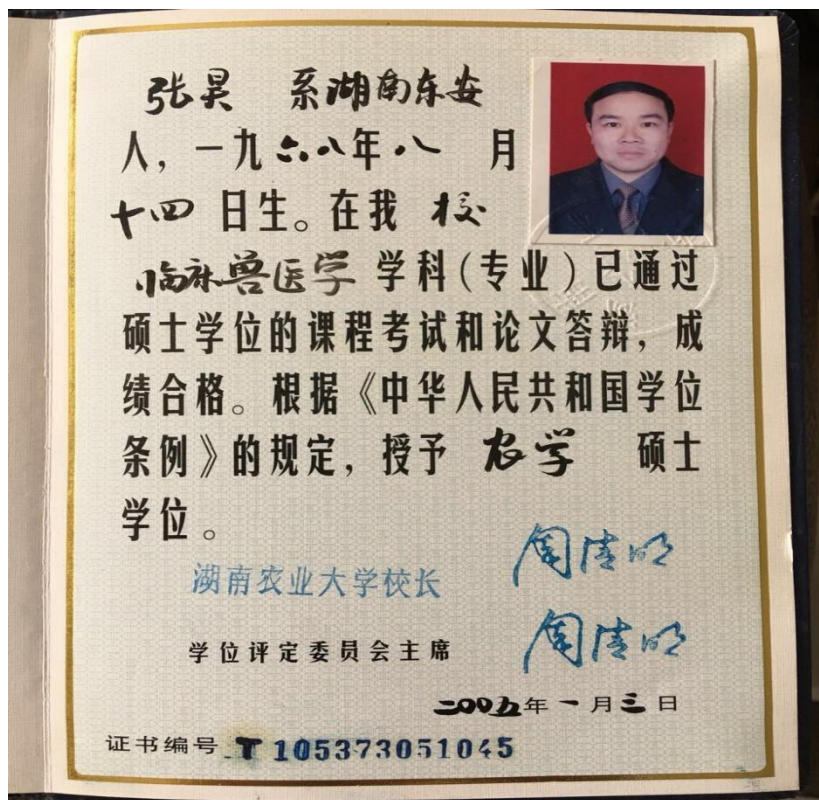 张昊 系湖南东安
人，一九六八年八 月
十四 日生。在我 校
临床兽医学 学科(专业)已通过
硕士学位的课程考试和论文答辩，成
绩合格。根据《中华人民共和国学位
条例》的规定，授予 农学 硕士
学位。
湖南农业大学校长 周清明
学位评定委员会主席 周清明
二00五年一月三日
证书编号 T105373051045